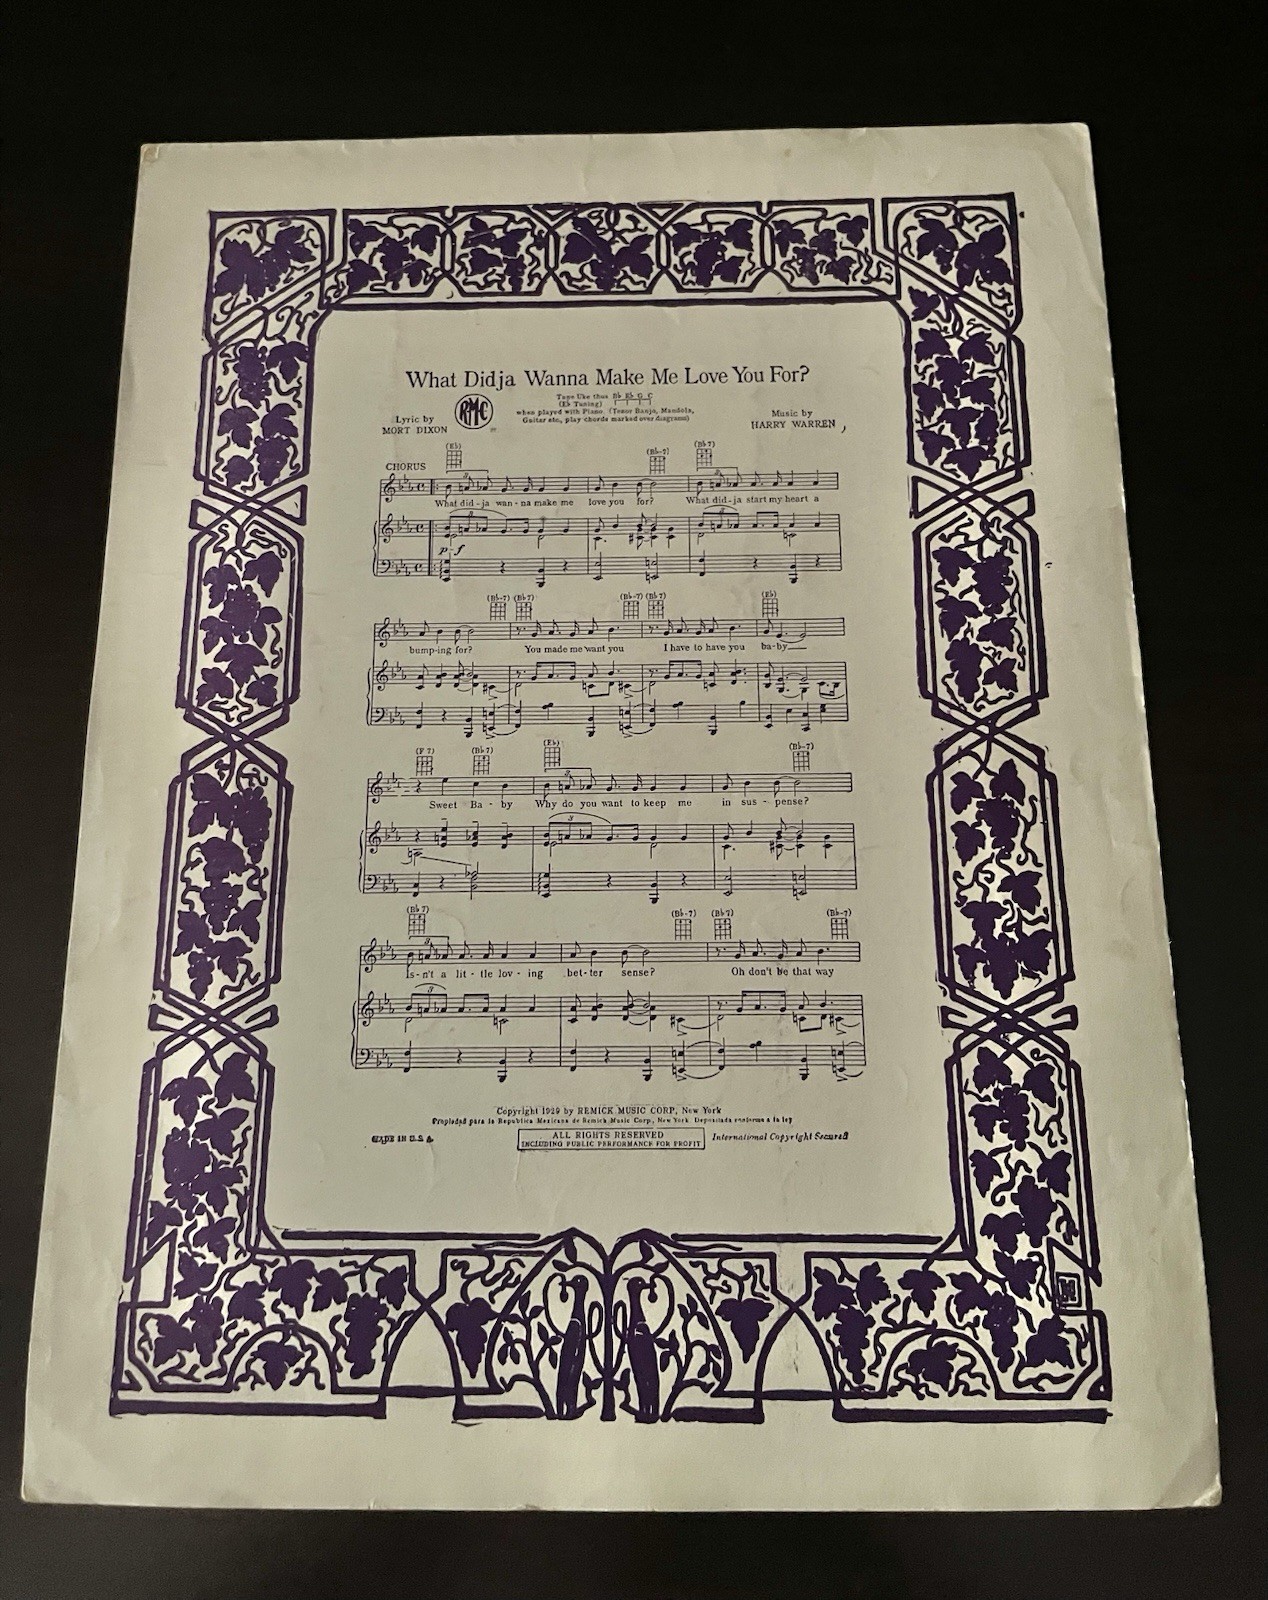 What Didja Wanna Make Me Love You For?
Tune Uke thus B♭ E♭ G C
(E♭ Tuning)
when played with Piano. (Tenor Banjo, Mandola,
Guitar etc, play chords marked over diagrams)
Lyric by
MORT DIXON
RMC
Music by
HARRY WARREN
CHORUS
(E♭) (B♭-7) (B♭7)
What did-ja wan-na make me love you for? What did-ja start my heart a
p-f
(B♭-7) (B♭7) (B♭-7) (B♭7) (E♭)
bump-ing for? You made me want you I have to have you ba-by
(F7) (B♭7) (E♭) (B♭-7)
Sweet Ba-by Why do you want to keep me in sus-pense?
(B♭7) (B♭-7) (B♭7) (B♭-7)
Is-n't a lit-tle lov-ing bet-ter sense? Oh don't be that way
Copyright 1929 by REMICK MUSIC CORP, New York
Propiedad para la Republica Mexicana de Remick Music Corp, New York Depositada conforme a la ley
MADE IN U.S.A.
ALL RIGHTS RESERVED
INCLUDING PUBLIC PERFORMANCE FOR PROFIT
International Copyright Secured